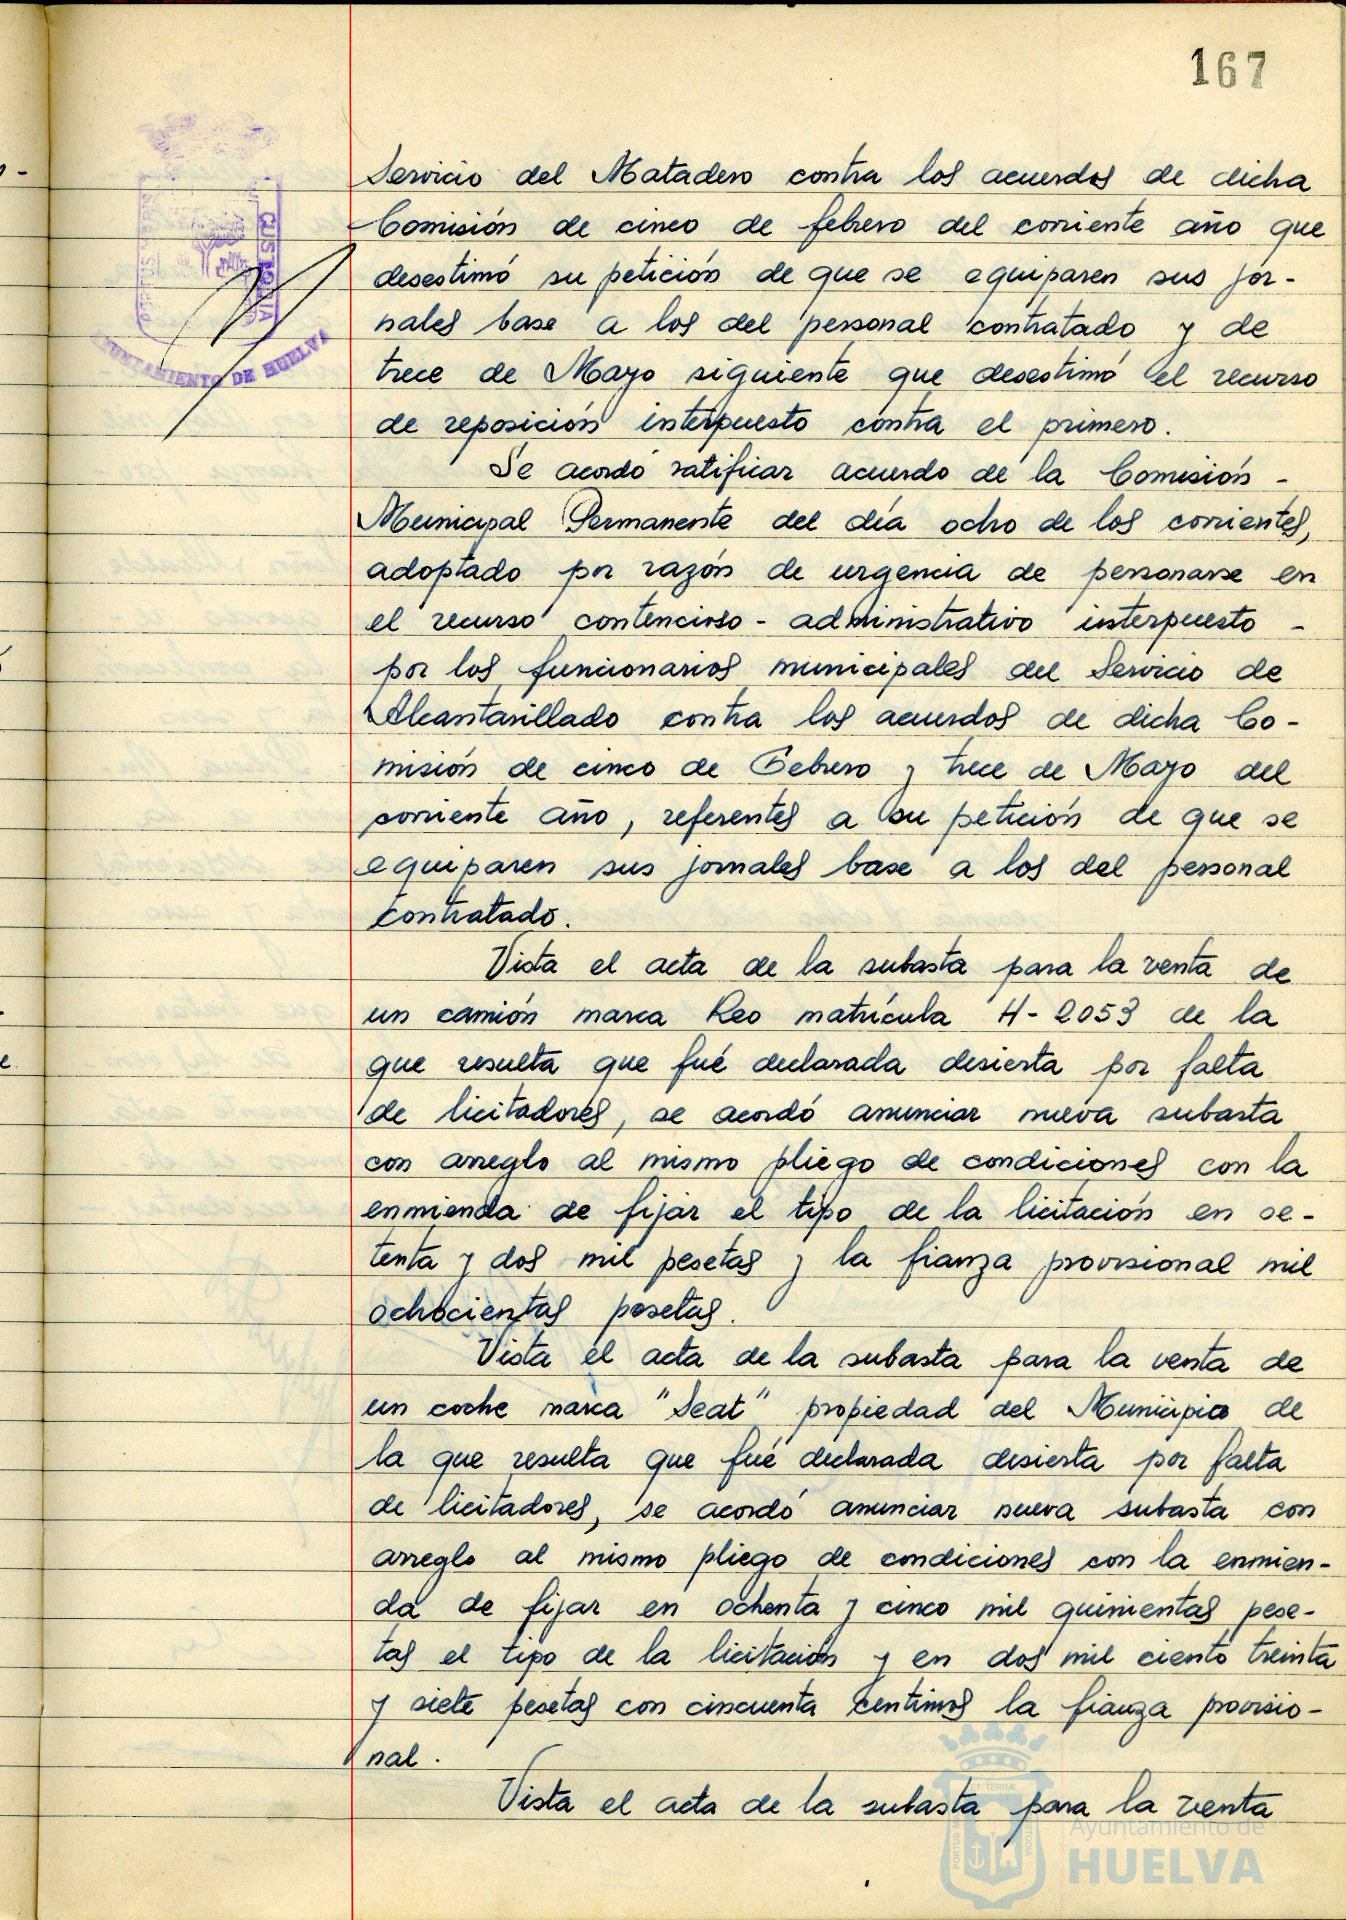 167
Servicio del Matadero contra los acuerdos de dicha
Comisión de cinco de febrero del corriente año que
desestimó su petición de que se equiparen sus jor-
nales base a los del personal contratado y de
trece de Mayo siguiente que desestimó el recurso
de reposición interpuesto contra el primero.
Se acordó ratificar acuerdo de la Comisión -
Municipal Permanente del día ocho de los corrientes,
adoptado por razón de urgencia de personarse en
el recurso contencioso - administrativo interpuesto -
por los funcionarios municipales del Servicio de
Alcantarillado contra los acuerdos de dicha Co-
misión de cinco de Febrero y trece de Mayo del
corriente año, referentes a su petición de que se
equiparen sus jornales base a los del personal
contratado.
Vista el acta de la subasta para la venta de
un camión marca Reo matrícula H-2053 de la
que resulta que fué declarada desierta por falta
de licitadores, se acordó anunciar nueva subasta
con arreglo al mismo pliego de condiciones con la
enmienda de fijar el tipo de la licitación en se-
tenta y dos mil pesetas y la fianza provisional mil
ochocientas pesetas.
Vista el acta de la subasta para la venta de
un coche marca "Seat" propiedad del Municipio de
la que resulta que fué declarada desierta por falta
de licitadores, se acordó anunciar nueva subasta con
arreglo al mismo pliego de condiciones con la enmien-
da de fijar en ochenta y cinco mil quinientas pese-
tas el tipo de la licitación y en dos mil ciento treinta
y siete pesetas con cincuenta centimos la fianza provisio-
nal.
Vista el acta de la subasta para la venta
PORTUS MARIS
CUSTODIA
AYUNTAMIENTO DE HUELVA
Ayuntamiento de
HUELVA